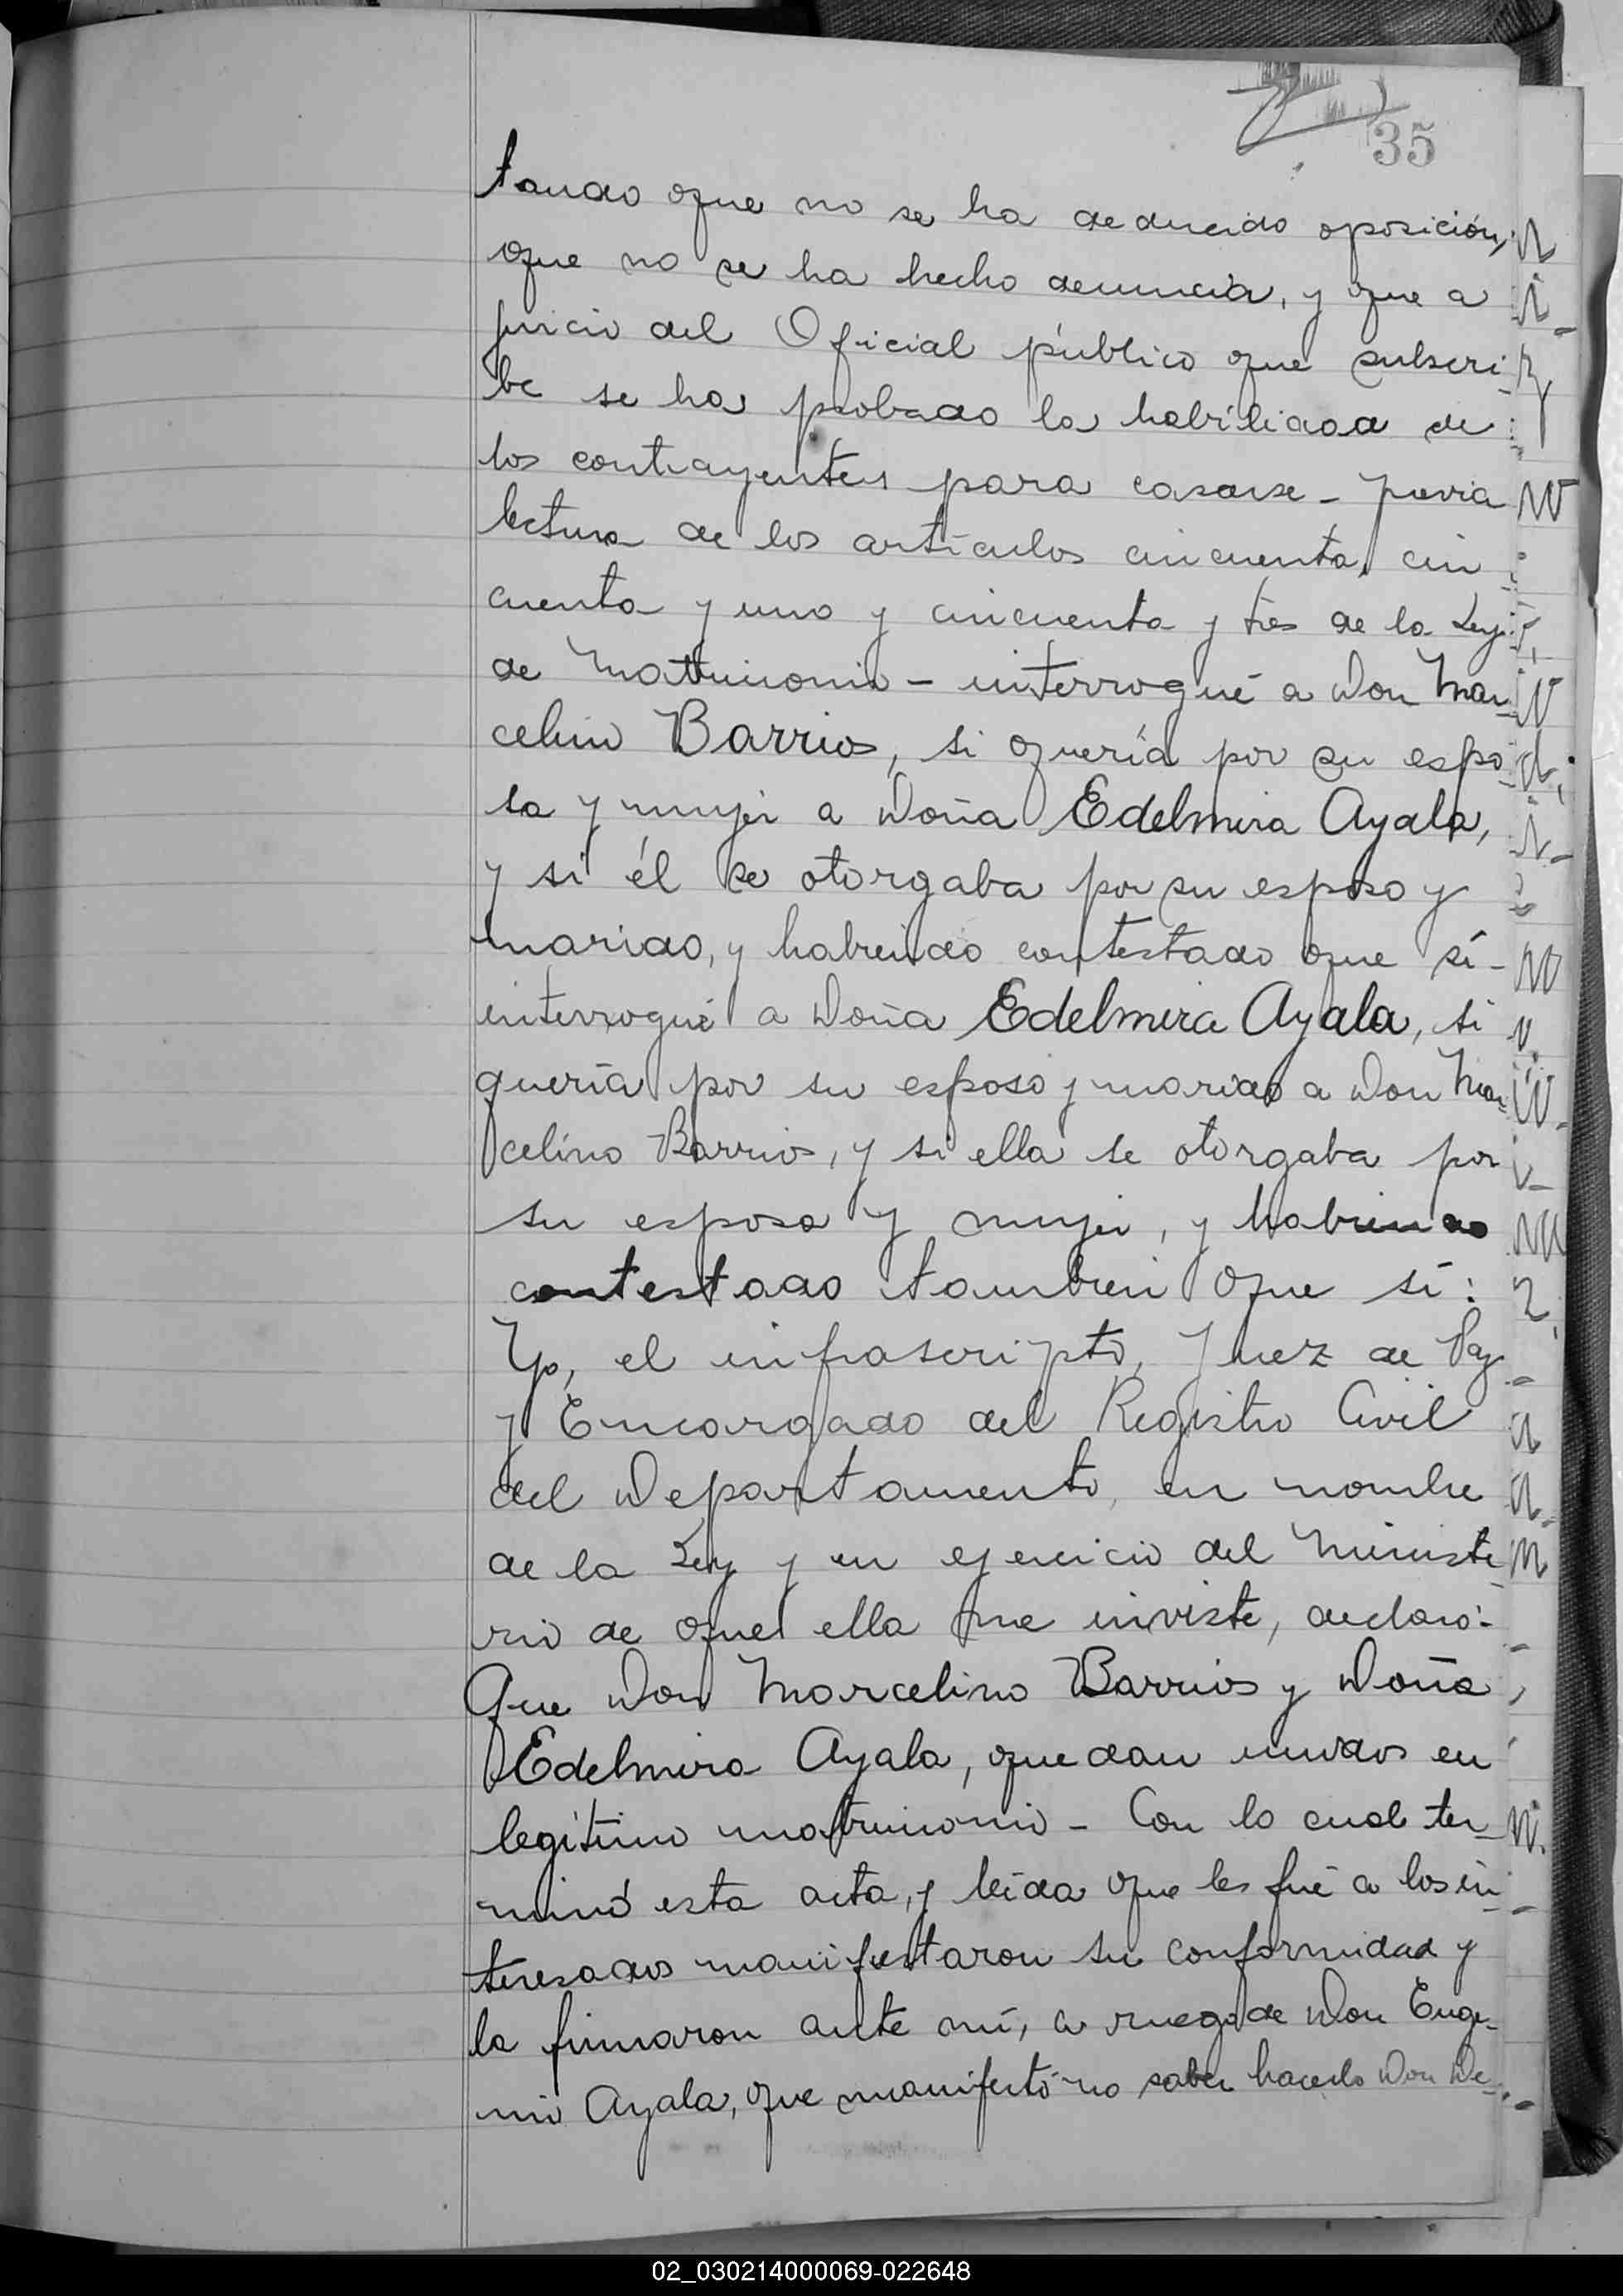 35
tando que no se ha deducido oposición,
que no se ha hecho denuncia, y que a
juicio del Oficial público que subscri-
be se ha probado la habilidad de
los contrayentes para casarse - previa
lectura de los artículos cincuenta, cin
cuenta y uno y cincuenta y tres de la Ley
de Matrimonio - interrogué a Don Mar-
celino Barrios, si quería por su espo-
sa y mujer a Doña Edelmira Ayala,
y si él se otorgaba por su esposo y
marido, y habiendo contestado que sí -
interrogué a Doña Edelmira Ayala, si
quería por su esposo y marido a Don Mar-
celino Barrios, y si ella se otorgaba por
su esposa y mujer, y habiendo
contestado tambien que sí:
Yo, el infrascripto, Juez de Paz
y Encargado del Registro Civil
del Departamento, en nombre
de la Ley y en ejercicio del Ministe-
rio de que ella me inviste, declaro:-
Que Don Marcelino Barrios y Doña
Edelmira Ayala, quedan unidos en
legítimo matrimonio - Con lo cual ter-
minó esta acta, y leída que les fué a los in-
teresados manifestaron su conformidad y
la firmaron ante mí, a ruego de Don Euge-
nio Ayala, que manifestó no saber hacerlo Don De-
02_030214000069-022648